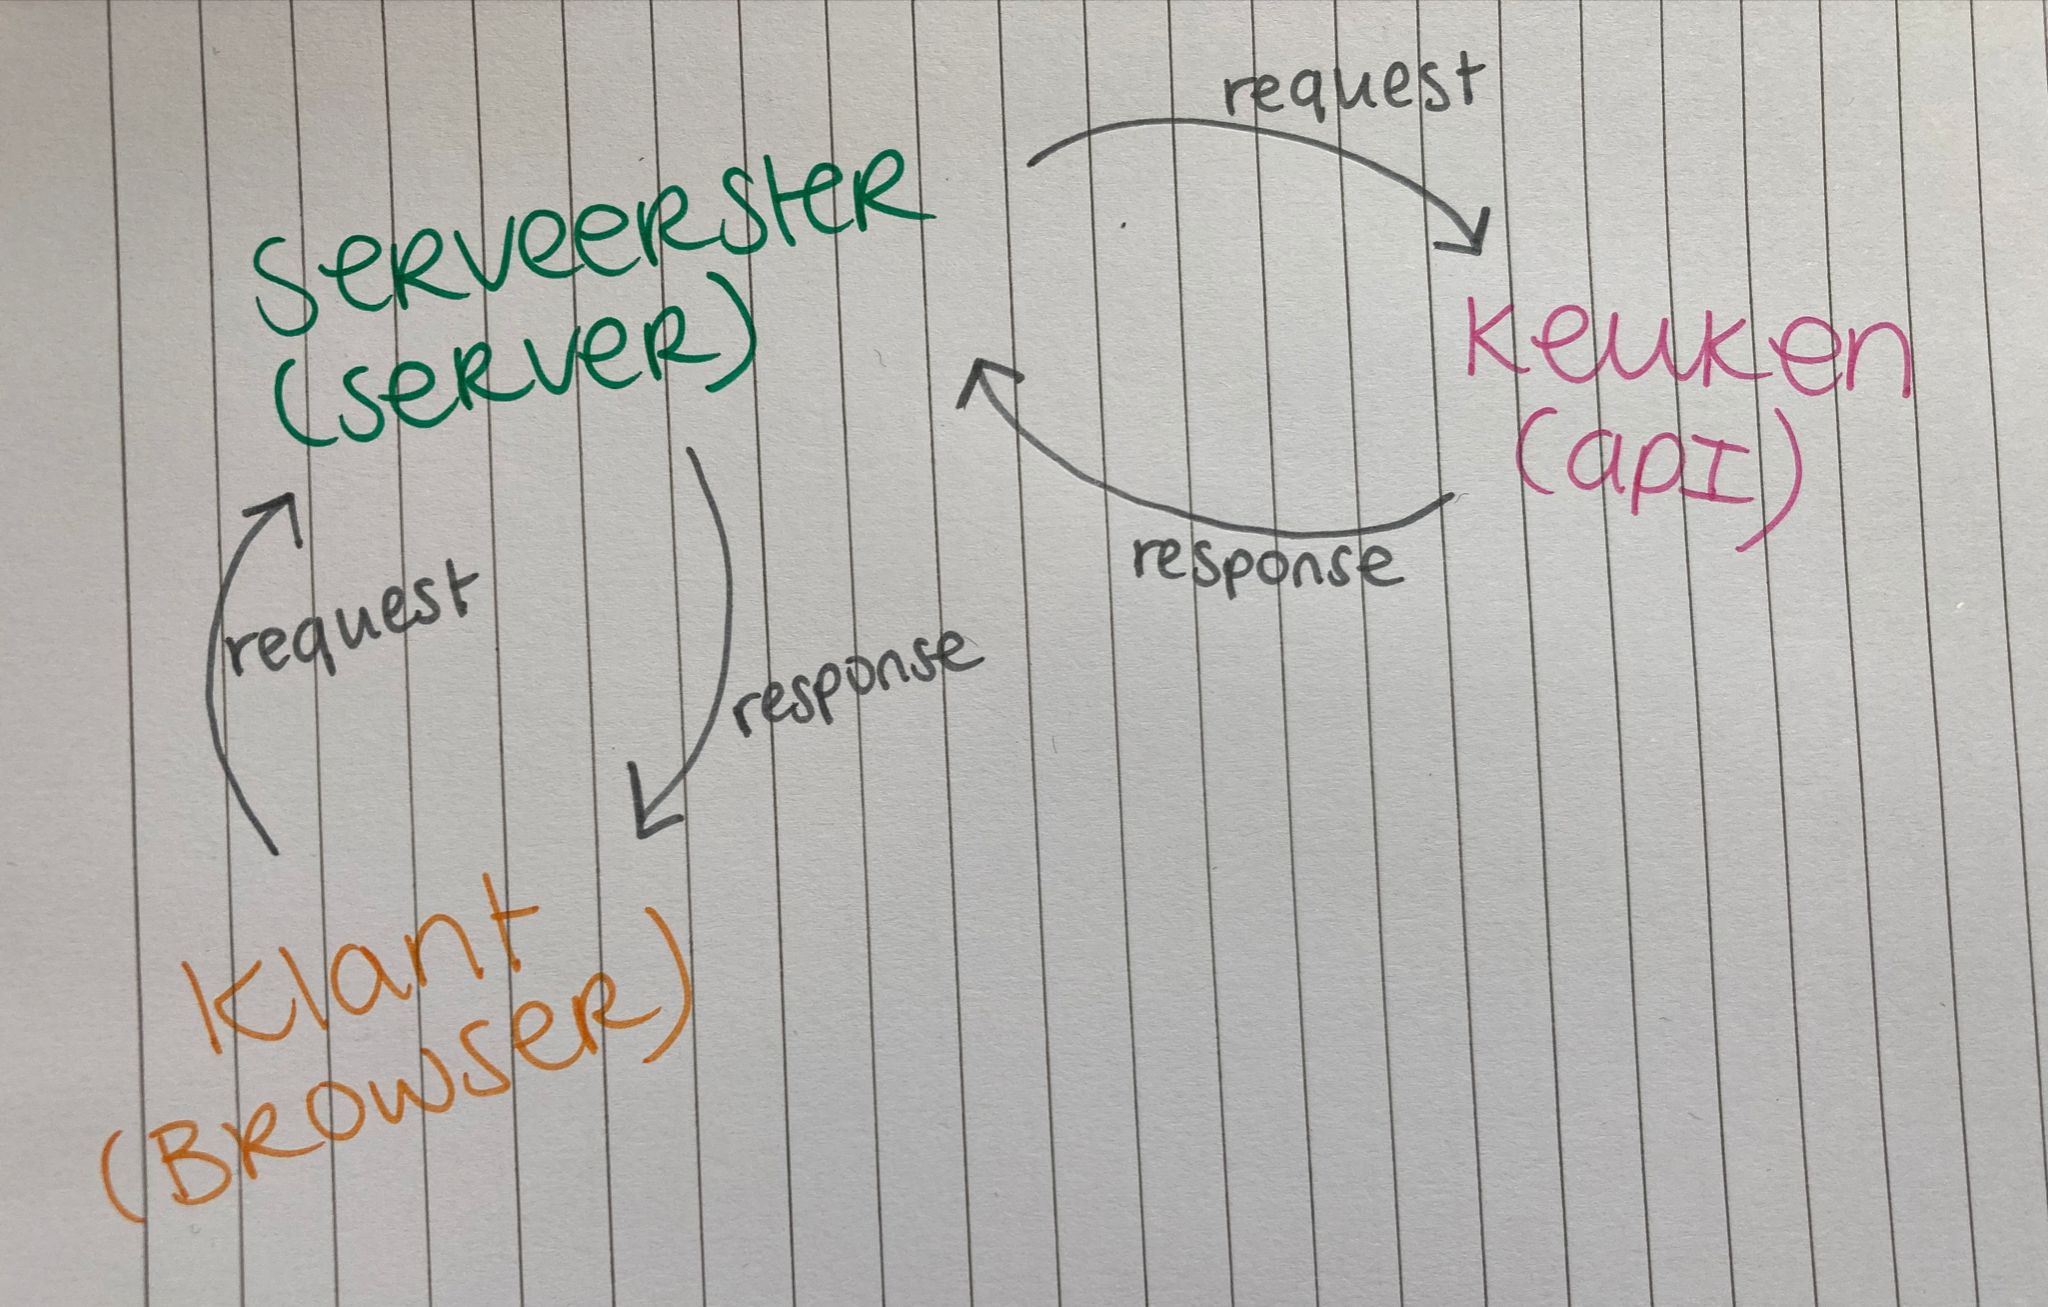 request
serveerster
(server)
keuken
(api)
response
request
response
klant
(Browser)